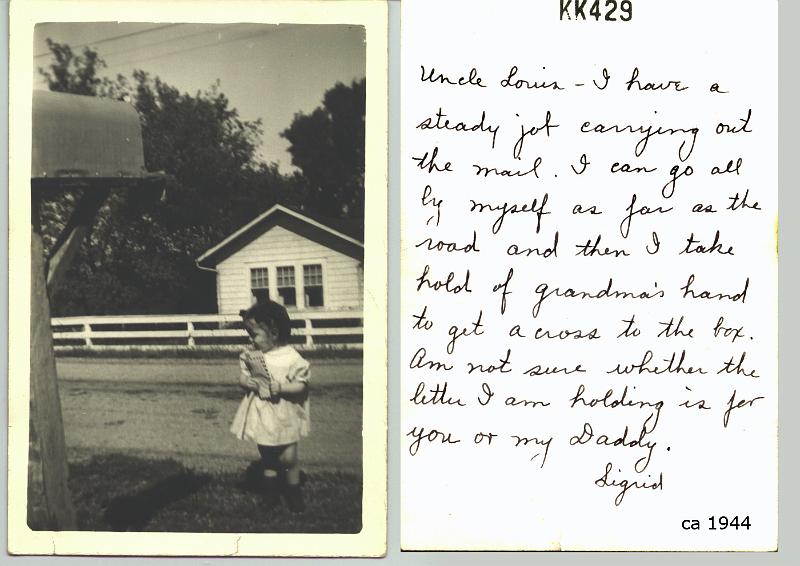 KK429
Uncle Louis - I have a
steady job carrying out
the mail. I can go all
by myself as far as the
road and then I take
hold of grandma's hand
to get across to the box.
Am not sure whether the
letter I am holding is for
you or my Daddy.
Sigrid
ca 1944